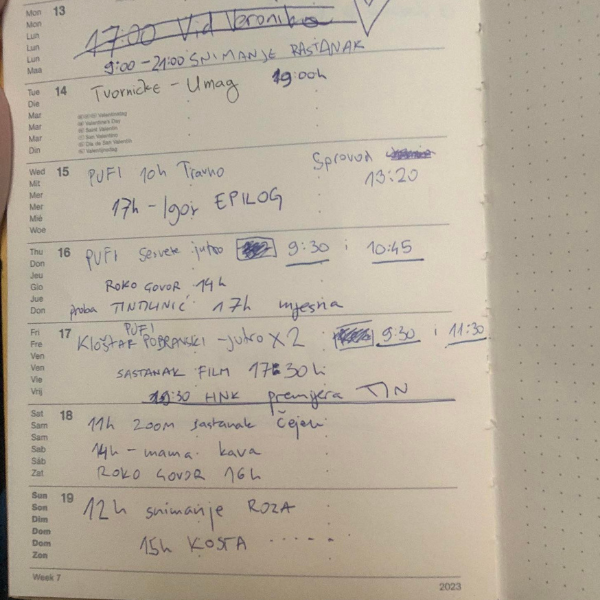 Mon 13
Mon
Lun
Lun
Lun
Maa
17:00 Vid Veronika
9:00-21:00 SNIMANJE RASTANAK
Tue 14
Die
Mar
Mar
Mar
Din
Tvorničke - Umag 19:00h
Valentinstag
Valentine's Day
Saint Valentin
San Valentino
Día de San Valentín
Valentijnsdag
Wed 15
Mit
Mer
Mer
Mié
Woe
PUFI 10h Travno
Sprovod
13:20
17h - Igor EPILOG
Thu 16
Don
Jeu
Gio
Jue
Don
PUFI Servete jutro 9:30 i 10:45
ROKO GOVOR 14h
proba TINTILINIĆ 17h mjesna
Fri 17
Fre
Ven
Ven
Vie
Vrij
PUFI
KLOŠTAR PODRAVSKI - jutro X 2 9:30 i 11:30
SASTANAK FILM 17:30h
19:30 HNK premijera TIN
Sat 18
Sam
Sam
Sab
Sáb
Zat
11h ZOOM sastanak Čejen
14h - mama kava
ROKO GOVOR 16h
Sun 19
Son
Dim
Dom
Dom
Zon
12h snimanje ROZA
15h KOSTA .....
Week 7
2023